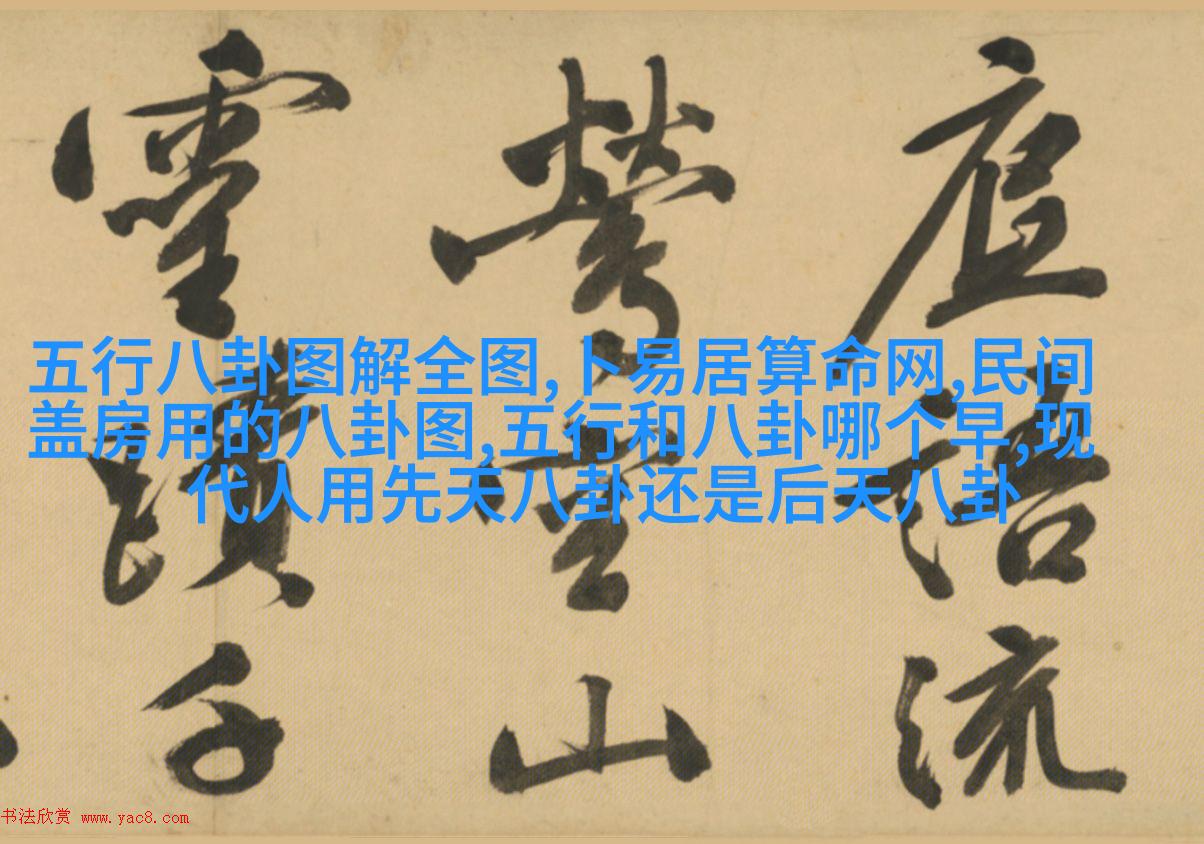 五行八卦图解全图,卜易居算命网,民间
盖房用的八卦图,五行和八卦哪个早,现
代人用先天八卦还是后天八卦
語流
鶯空山
靈蹟千
书法欣赏 www.yac8.com